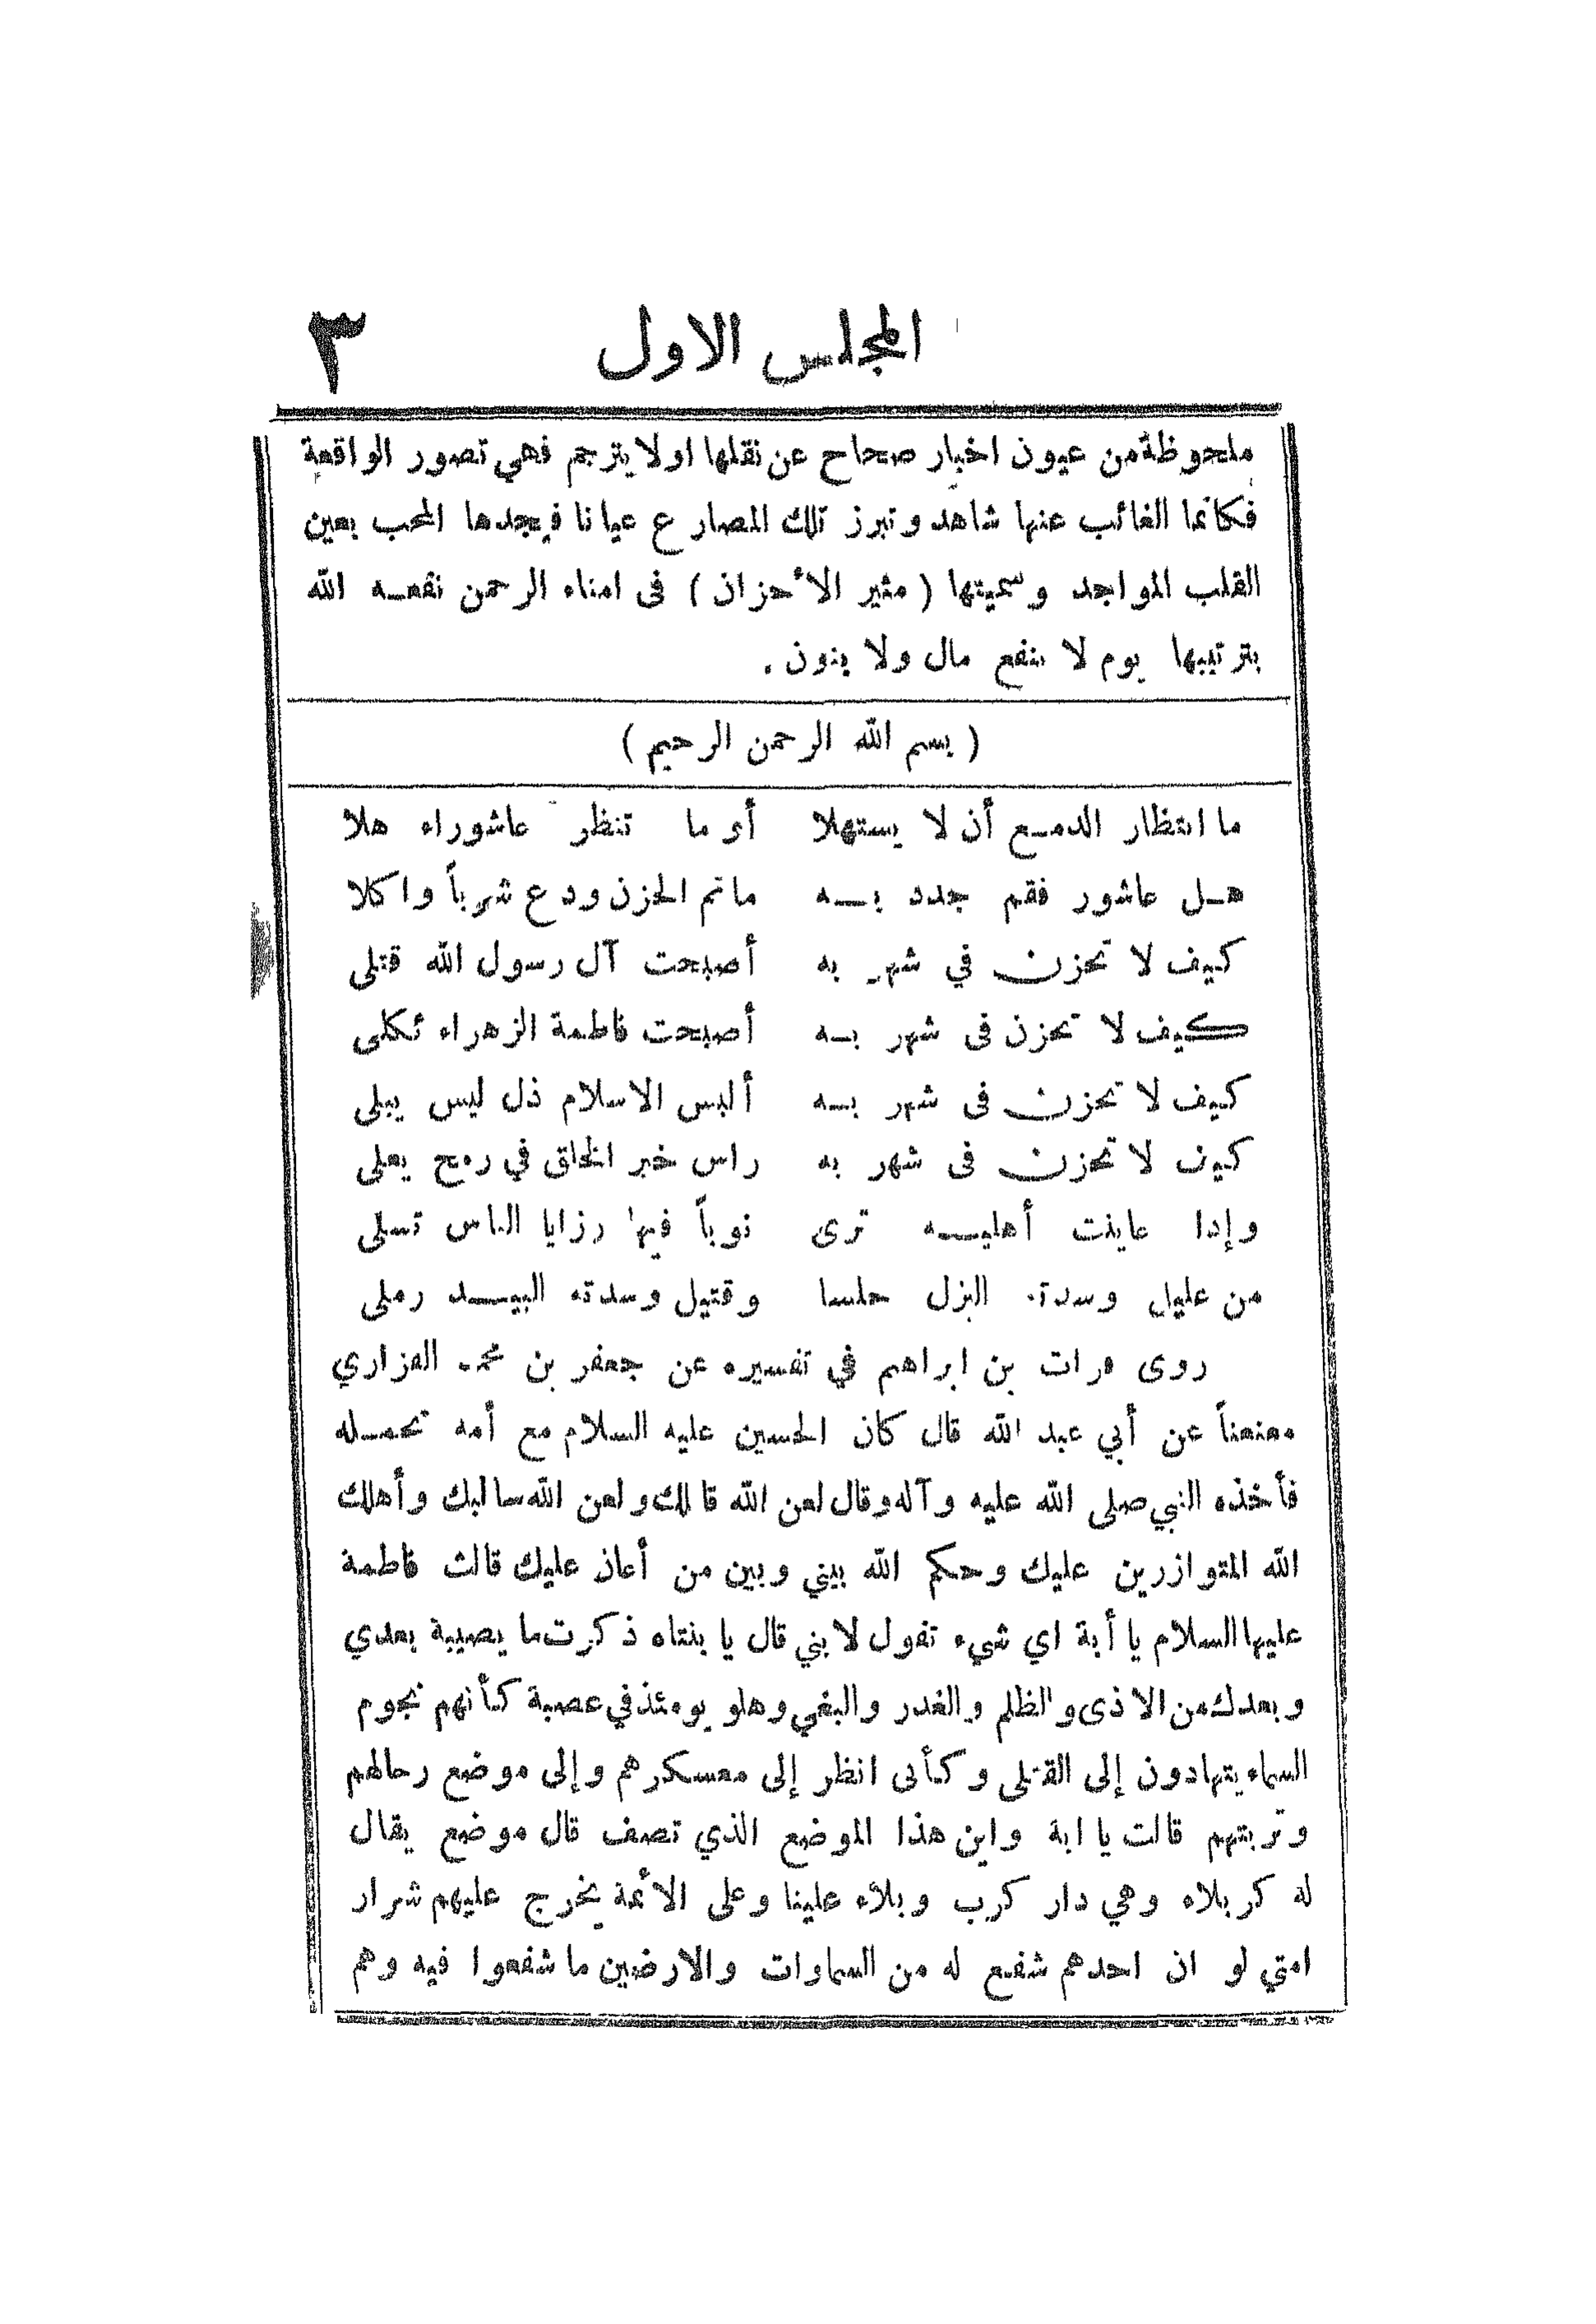 المجلس الاول ٣
ملحوظة من عيون اخبار صحاح عن نقلها اولا يترجم فهي تصور الواقعة
فكانما الغائب عنها شاهد وتبرز تلك المصارع عيانا فيجدها المحب بعين
القلب المواجد وسميتها ( مثير الأحزان ) في امناء الرحمن نفعه الله
بترتيبها يوم لا ينفع مال ولا بنون .
( بسم الله الرحمن الرحيم )
ما انتظار الدمع أن لا يستهلا أو ما تنظر عاشوراء هلا
هل عاشور فقم جدد به ماتم الحزن ودع شرباً واكلا
كيف لا تحزن في شهر به أصبحت آل رسول الله قتلى
كيف لا تحزن فى شهر به أصبحت فاطمة الزهراء ثكلى
كيف لا تحزن فى شهر به ألبس الاسلام ذل ليس يبلى
كيف لا تحزن فى شهر به راس خير الخلق في رمح يعلى
وإذا عاينت أهليه ترى نوباً فيها رزايا الناس تسلى
من عليل وسدته البزل حلسا وقتيل وسدته البيد رملى
روى فرات بن ابراهيم في تفسيره عن جعفر بن محمد الفزاري
معنعناً عن أبي عبد الله قال كان الحسين عليه السلام مع أمه تحمله
فأخذه النبي صلى الله عليه وآله وقال لعن الله قاتلك ولعن الله سالبك وأهلك
الله المتوازرين عليك وحكم الله بيني وبين من أعان عليك قالت فاطمة
عليها السلام يا أبة اي شيء تقول لابني قال يا بنتاه ذكرت ما يصيبة بعدي
وبعدك من الاذى والظلم والغدر والبغي وهو يومئذ في عصبة كأنهم نجوم
السماء يتهادون إلى القتلى وكأنى انظر إلى معسكرهم وإلى موضع رحالهم
وتربتهم قالت يا ابة واين هذا الموضع الذي تصف قال موضع يقال
له كربلاء وهي دار كرب وبلاء علينا وعلى الأئمة يخرج عليهم شرار
امتي لو ان احدهم شفع له من السماوات والارضين ما شفعوا فيه وهم